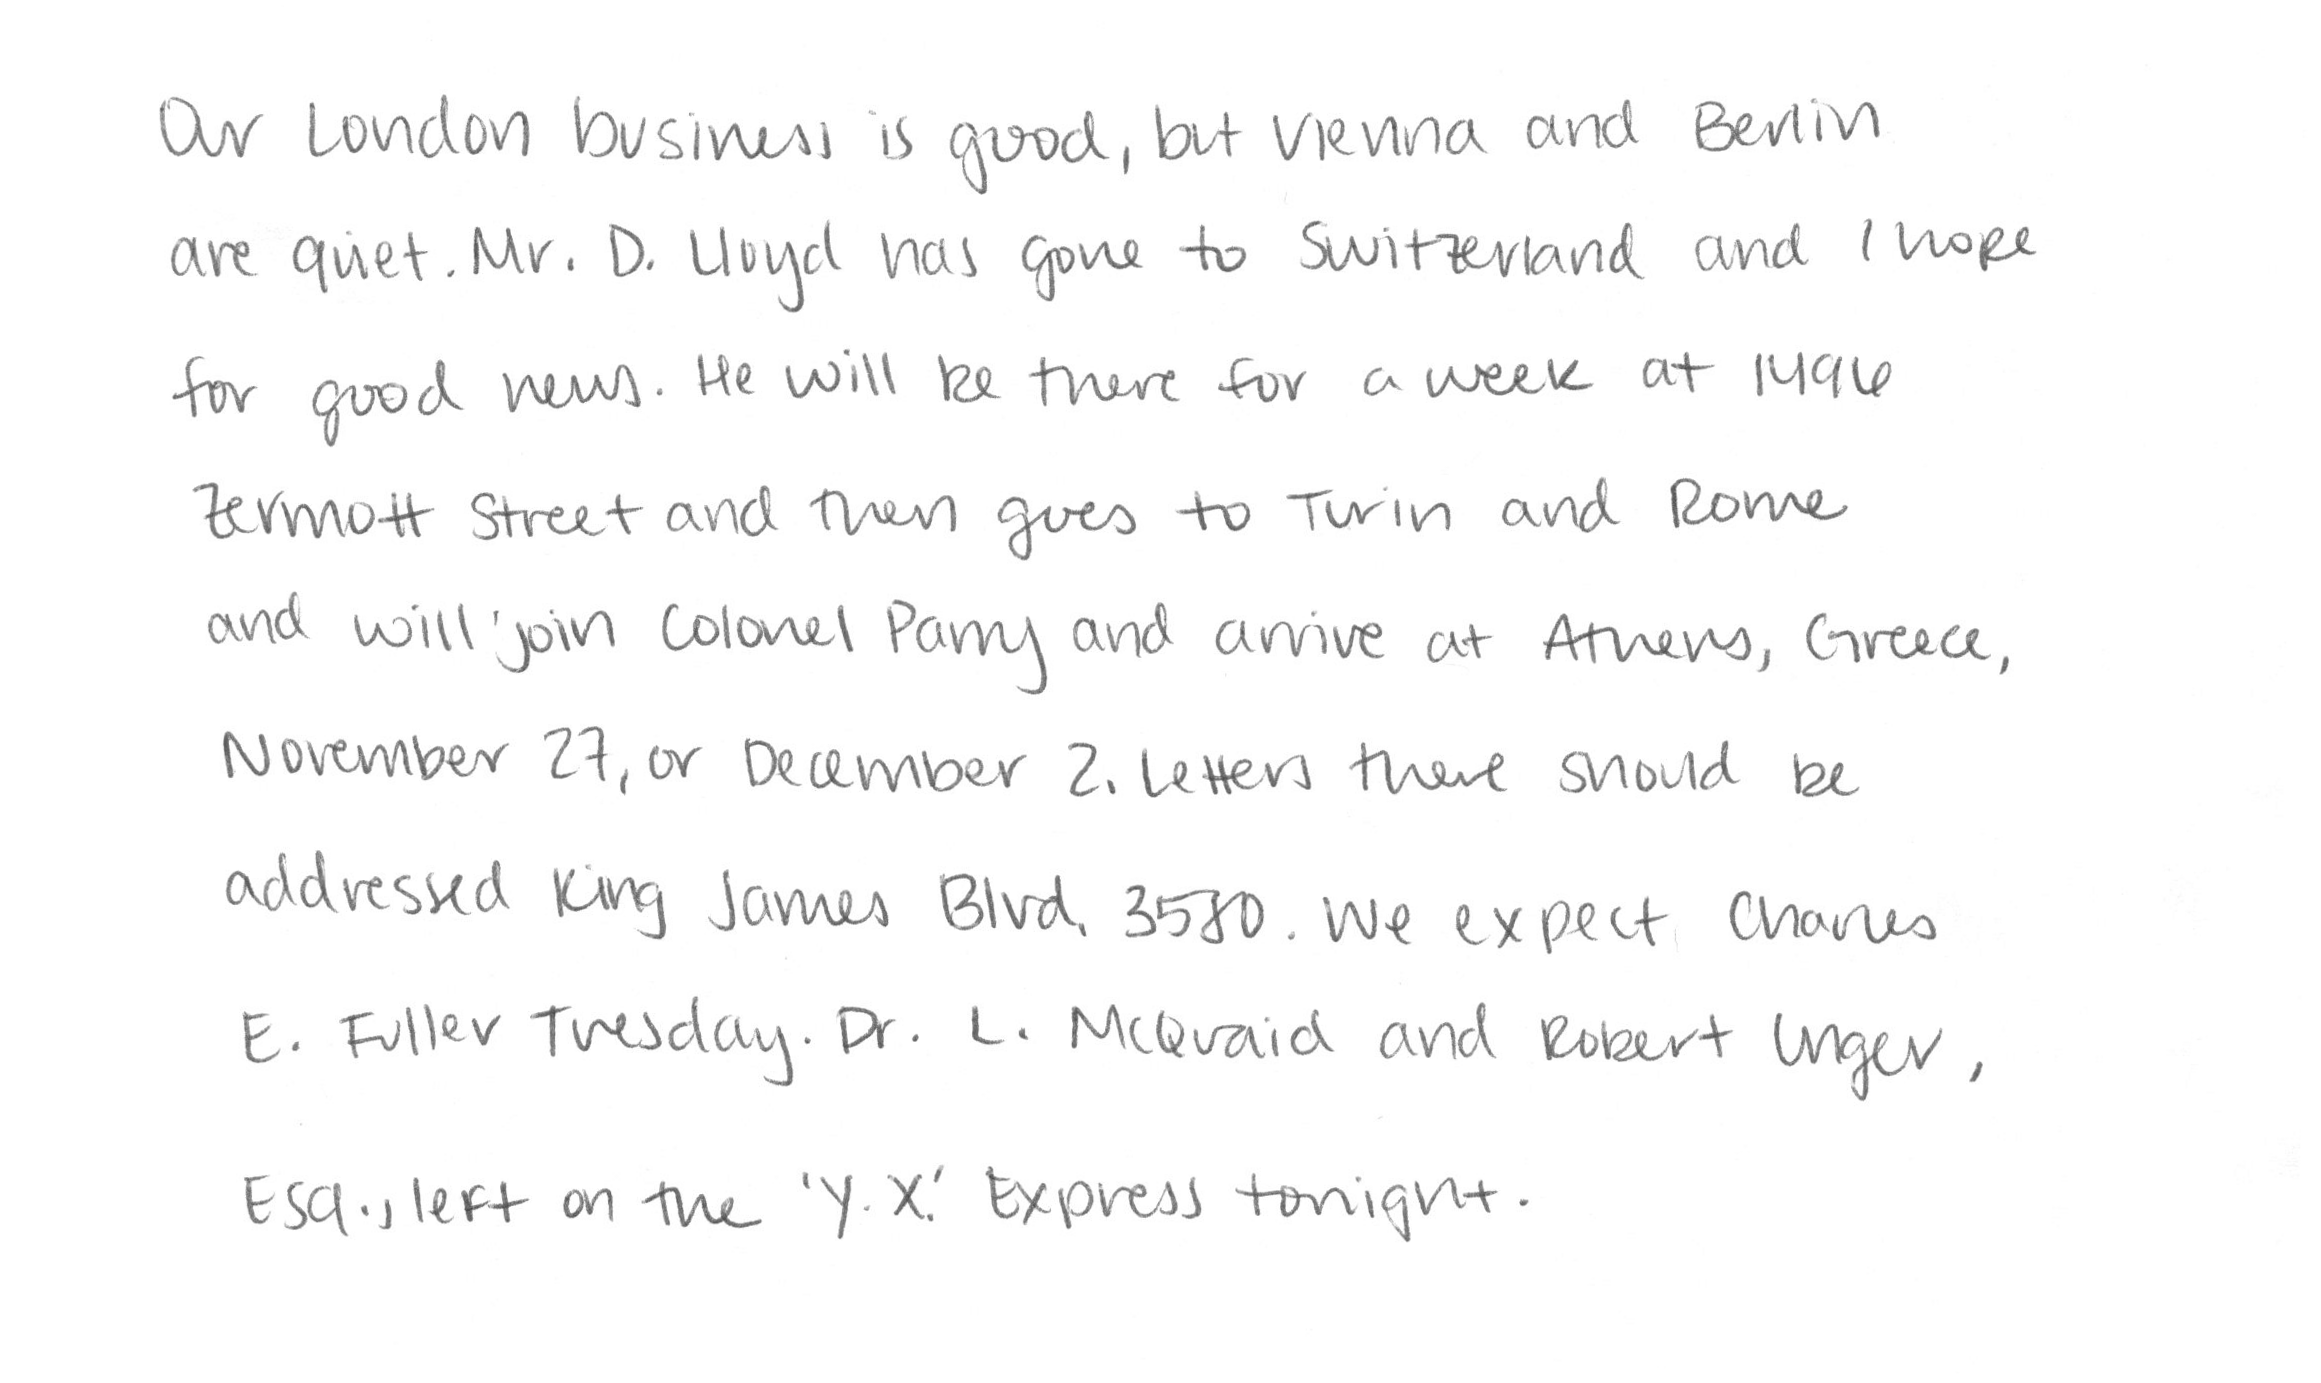 Our London business is good, but Vienna and Berlin
are quiet. Mr. D. Lloyd has gone to Switzerland and I hope
for good news. He will be there for a week at 1496
Zermott Street and then goes to Turin and Rome
and will join Colonel Parry and arrive at Athens, Greece,
November 27, or December 2. Letters there should be
addressed King James Blvd. 3580. We expect Charles
E. Fuller Tuesday. Dr. L. McQuaid and Robert Unger,
Esq., left on the 'Y.X.' Express tonight.